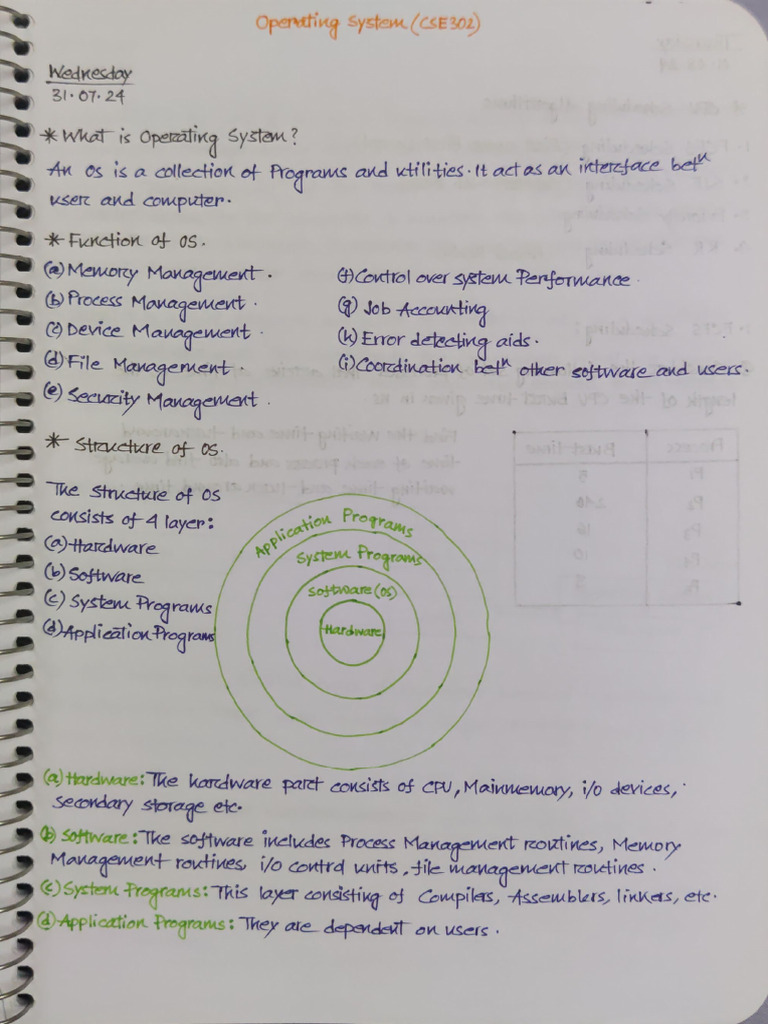 Operating System (CSE302)
Wednesday
31.07.24
* What is Operating System?
An OS is a collection of Programs and utilities. It act as an interface betⁿ
user and computer.
* Function of OS.
(a) Memory Management.
(b) Process Management.
(c) Device Management.
(d) File Management.
(e) Security Management.
(f) Control over system Performance.
(g) Job Accounting
(h) Error detecting aids.
(i) Coordination betⁿ other software and users.
* Structure of OS.
The structure of OS
consists of 4 layer:
(a) Hardware
(b) Software
(c) System Programs
(d) Application Programs
Application Programs
System Programs
Software (OS)
Hardware
(a) Hardware: The hardware part consists of CPU, Mainmemory, i/o devices,
secondary storage etc.
(b) Software: The software includes Process Management routines, Memory
Management routines, i/o control units, file management routines.
(c) System Programs: This layer consisting of Compilers, Assemblers, linkers, etc.
(d) Application Programs: They are dependent on users.